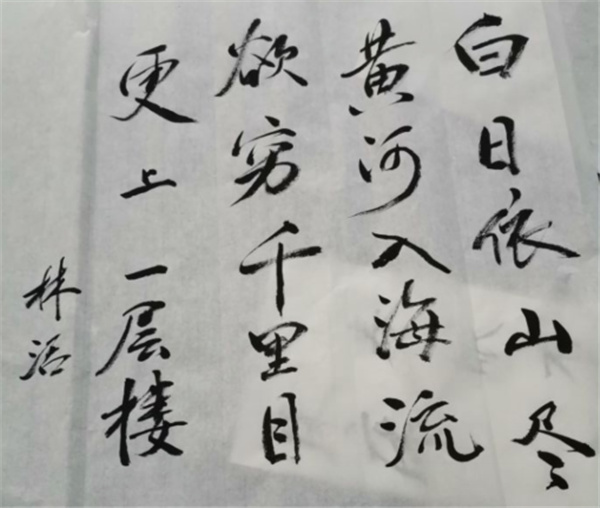 白日依山尽
黄河入海流
欲穷千里目
更上一层楼
林活